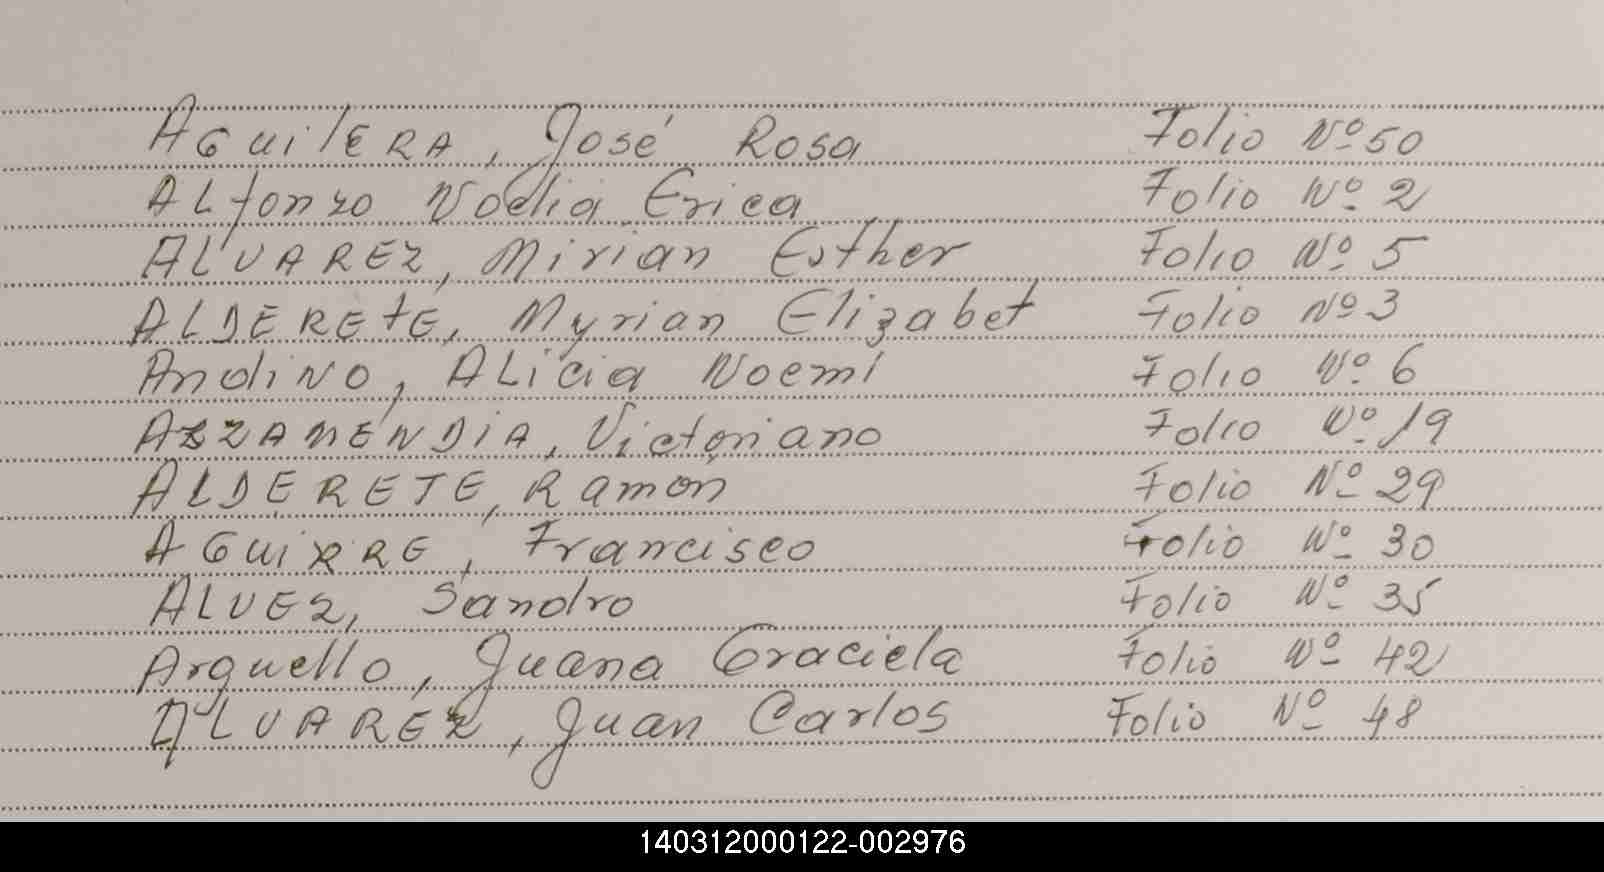 AGUilERA, José Rosa Folio Nº 50
ALfonzo Nodia Erica Folio Nº 2
ALVAREZ, Mirian Esther Folio Nº 5
ALDERETE, Myrian Elizabet Folio Nº 3
Andino, ALicia Noemí Folio Nº 6
AZZAMENDIA, Victoriano Folio Nº 19
ALDERETE, Ramón Folio Nº 29
AGUIRRE, Francisco Folio Nº 30
ALVEZ, Sandro Folio Nº 35
Arguello, Juana Graciela Folio Nº 42
ALVAREZ, Juan Carlos Folio Nº 48
140312000122-002976